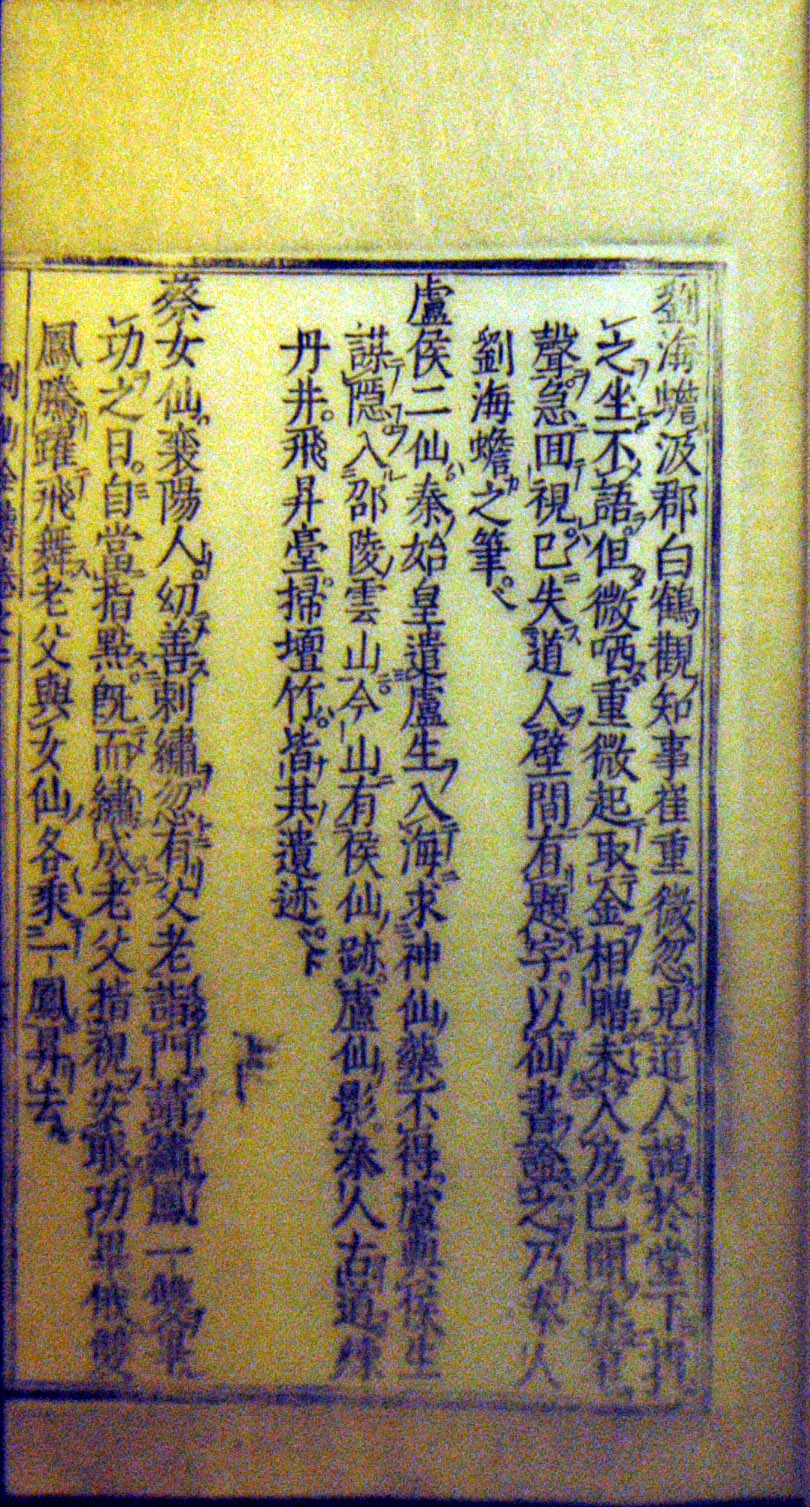 劉海蟾汲郡白鶴觀知事崔重微忽見道人謁於堂下揖
之坐不語但微哂重微起取金相贈未入房已聞弄筆
聲急囬視已失道人壁間有題字以仙書證之乃奉人
劉海蟾之筆
盧侯二仙秦始皇遣盧生入海求神仙藥不得盧與侯生
謀隱入邵陵雲山今山有侯仙跡盧仙影秦人古道煉
丹井飛昇臺掃壇竹皆其遺迹
蔡女仙襄陽人幼善刺繡忽有父老詣門請繡鳳一雙畢
功之日自當指點旣而繡成老父指視安眼功畢俄雙
鳳騰躍飛舞老父與女仙各乘一鳳昇去